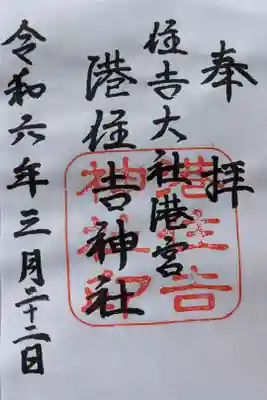 奉拝
住吉大社港宮
港住吉神社
令和六年三月二十二日
港住吉
神社印